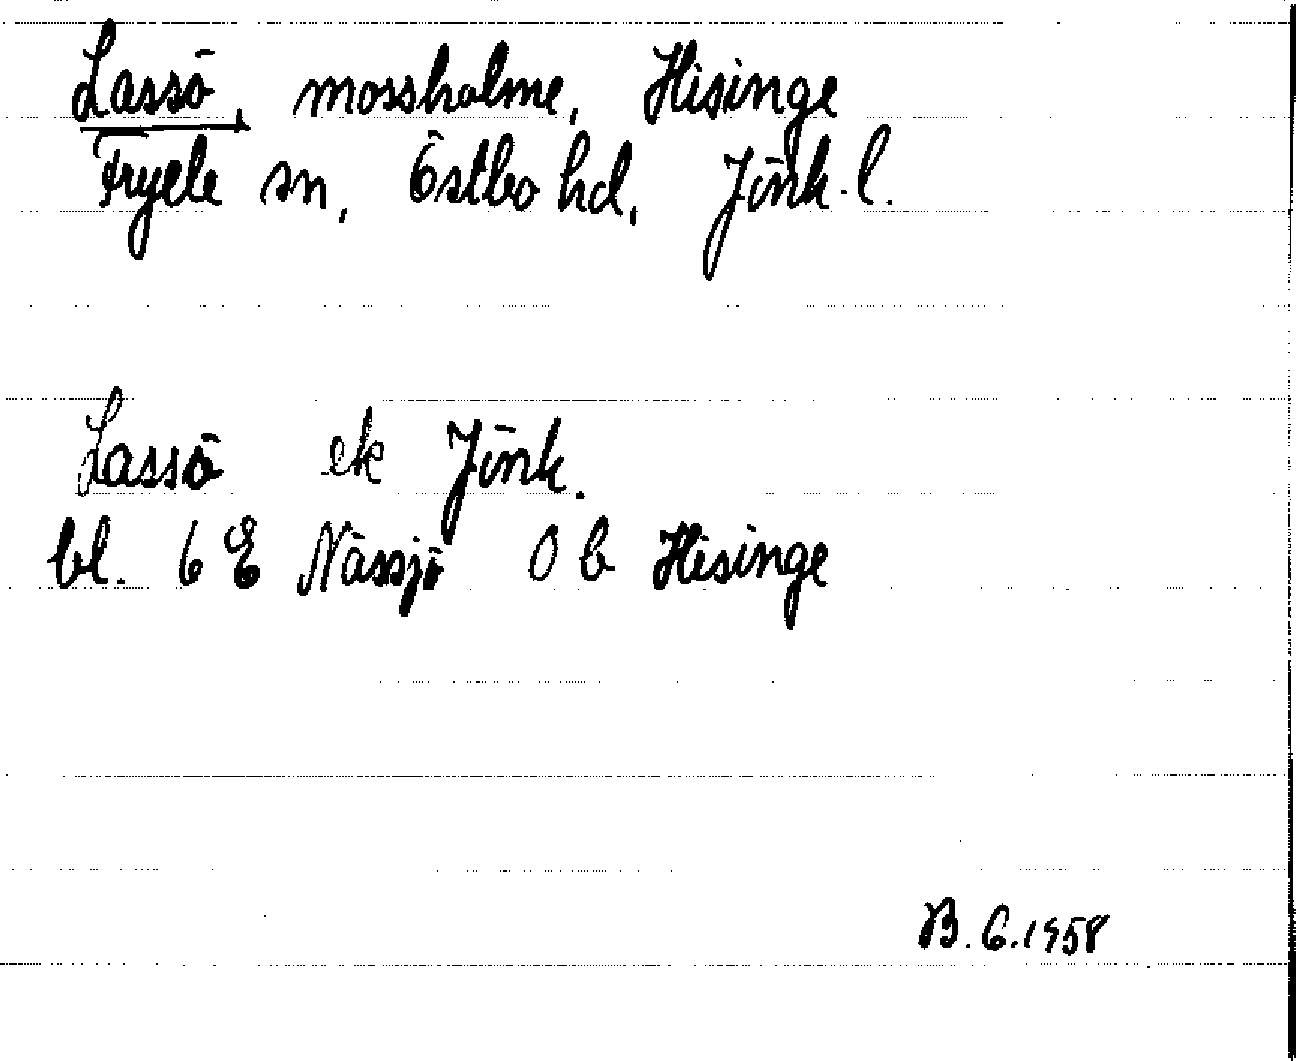 Lassö, mossholme, Hisinge
Fryele sn, Östbo hd, Jönk. l.
Lassö ek Jönk.
bl. 6 E Nässjö 0 b Hisinge
B. G. 1958